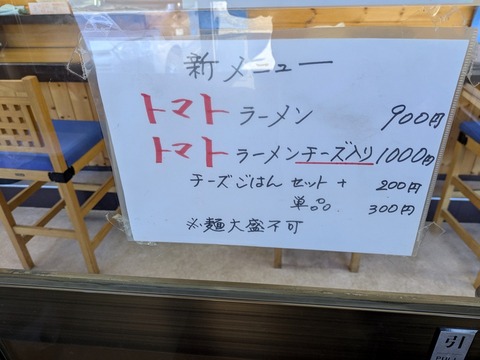 新メニュー
トマトラーメン 900円
トマトラーメンチーズ入り 1000円
チーズごはん セット + 200円
単品 300円
※麺大盛不可
引
PULL